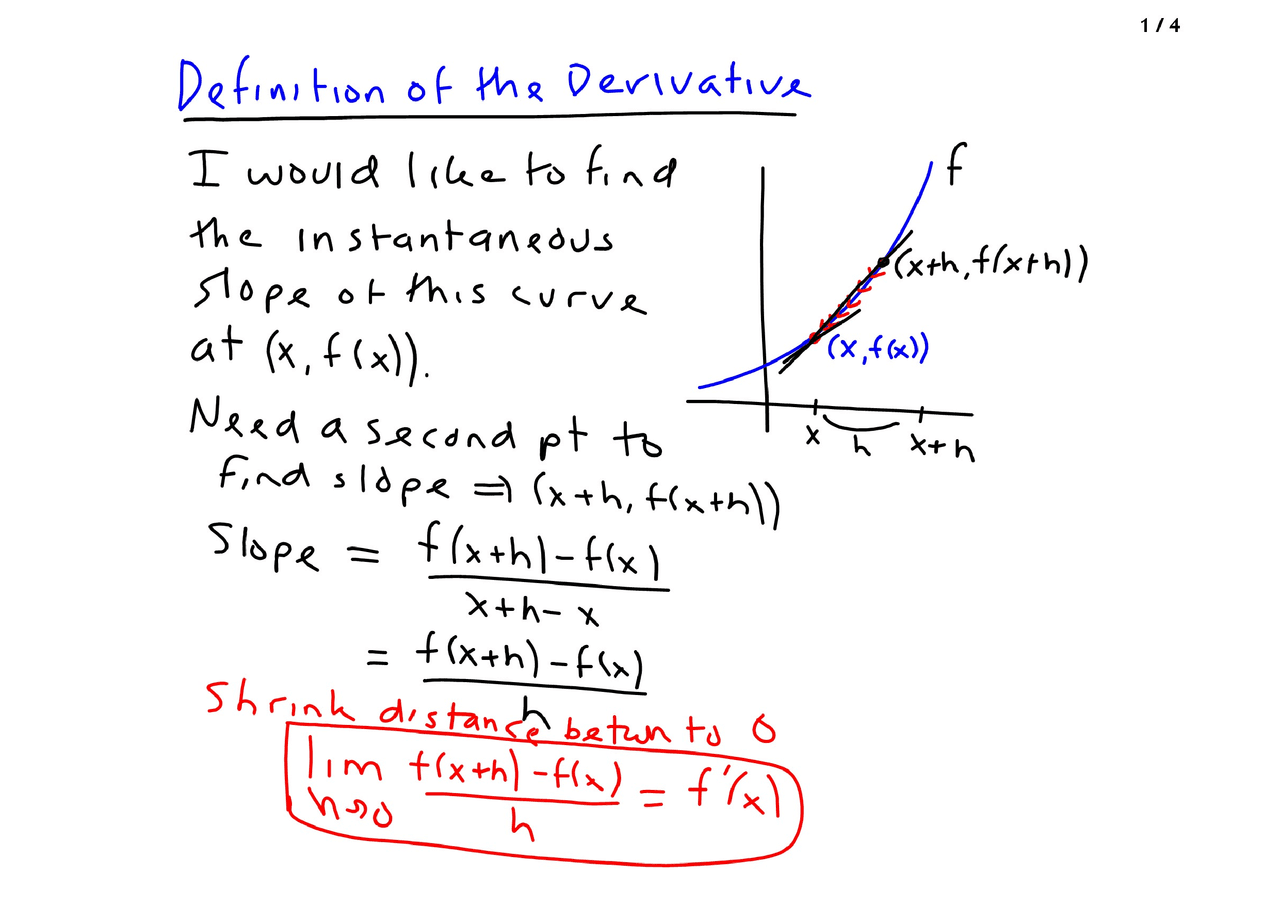 1 / 4
Definition of the Derivative
I would like to find
the instantaneous
slope of this curve
at (x, f(x)).
Need a second pt to
find slope ⇒ (x+h, f(x+h))
Slope = f(x+h) - f(x)
x+h - x
= f(x+h) - f(x)
h
Shrink distance betwn to 0
lim f(x+h) - f(x) = f'(x)
h→0 h
f
(x+h, f(x+h))
(x, f(x))
x h x+h